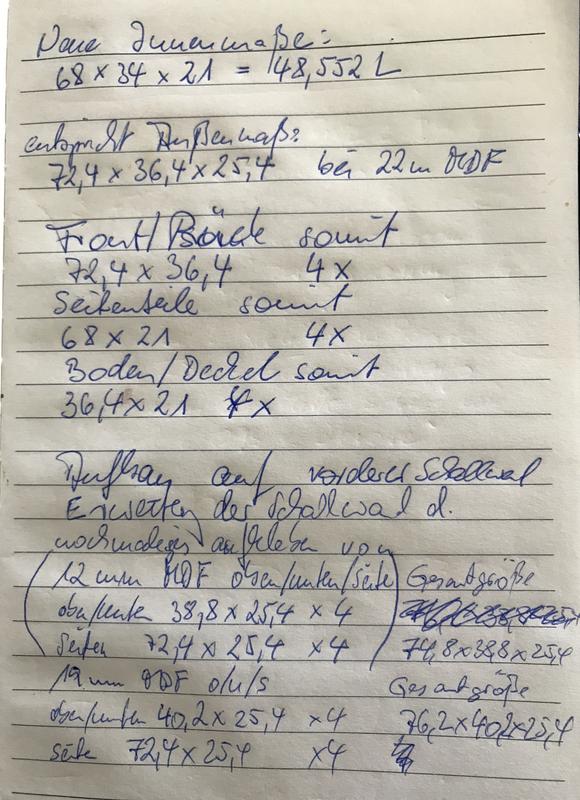 Neue Innenmaße:
68 x 34 x 21 = 48,552 L
entspricht Außenmaß:
72,4 x 36,4 x 25,4 bei 22m MDF
Front/Rück somit
72,4 x 36,4 4x
Seitenteile somit
68 x 21 4x
Boden/Deckel somit
36,4 x 21 4x
auf vorderer Schallwal
Erweitern der Schallwal d.
nochmaliges aufkleben von
(12 mm MDF oben/unten/Seite) Gesamtgröße
oben/unten 38,8 x 25,4 x 4
Seiten 72,4 x 25,4 x 4 74,8x38,8x25,4
19 mm MDF o/u/s Gesamtgröße
oben/unten 40,2 x 25,4 x4 76,2x40,2x25,4
Seite 72,4 x 25,4 x4